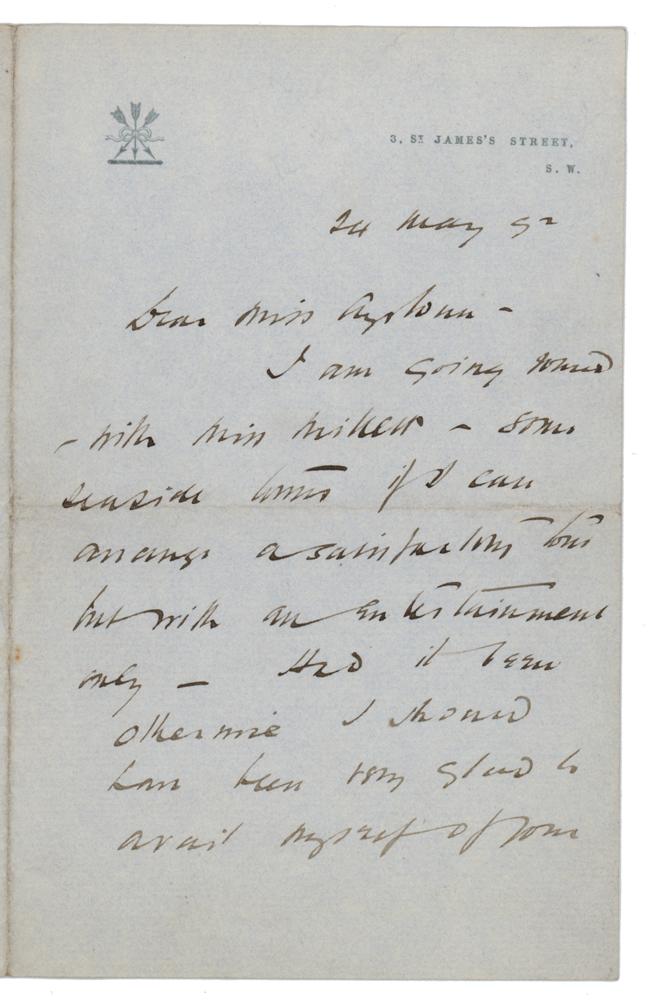 3, ST JAMES'S STREET,
S. W.
24 May
Dear Miss
I am going round
- with Miss - some
seaside towns if I can
arrange a satisfactory tour
but with an entertainment
only - Had it been
otherwise I should
have been very glad to
avail myself of your